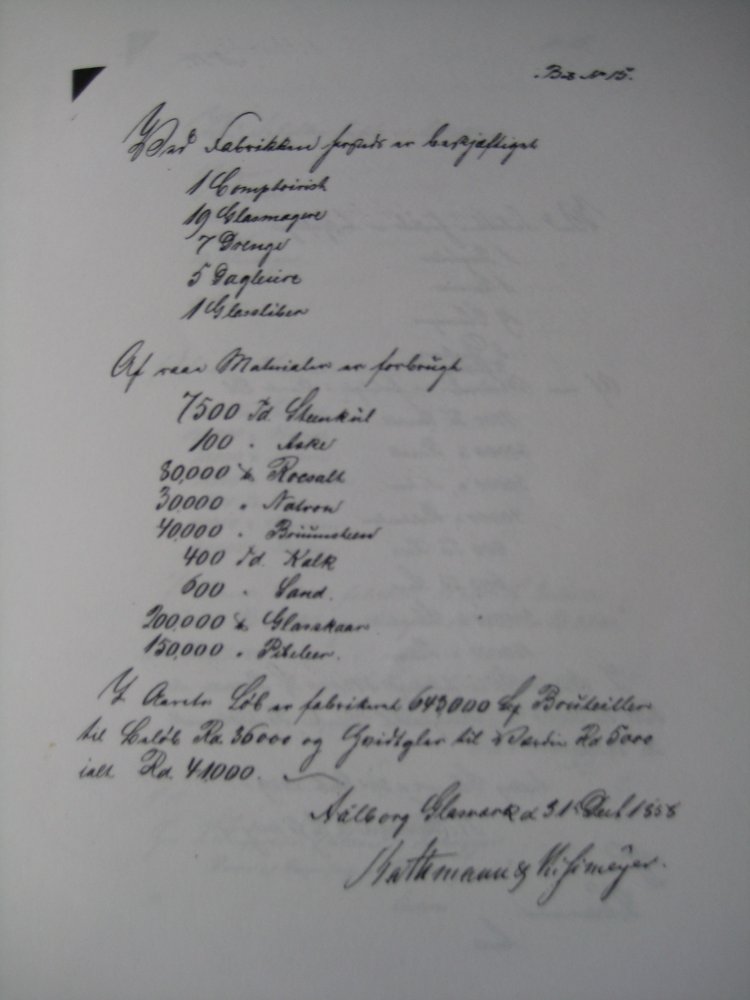 Bz. No 15.
Ved Fabrikken forstids er beskjæftiget
1 Comptoirist
19 Glasmagere
7 Drenge
5 Dagleiere
1 Glassliber
Af raae Materialer er forbrugt
7500 Td. Steenkul
100 " Aske
30,000 ℔ Rocsalt
30,000 " Natron
40,000 " Bruunsteen
400 Td. Kalk
600 " Sand.
200,000 ℔ Glasskaar
150,000 " Pibeleer.
I Aarets Løb er fabrikeret 643,000 Bouteiller
til Beløb Rd. 36000 og Hvidtglas til Værdie Rd 5000
ialt Rd. 41,000.
Aalborg Glasværk d. 31 Decb 1858
Kathmann &